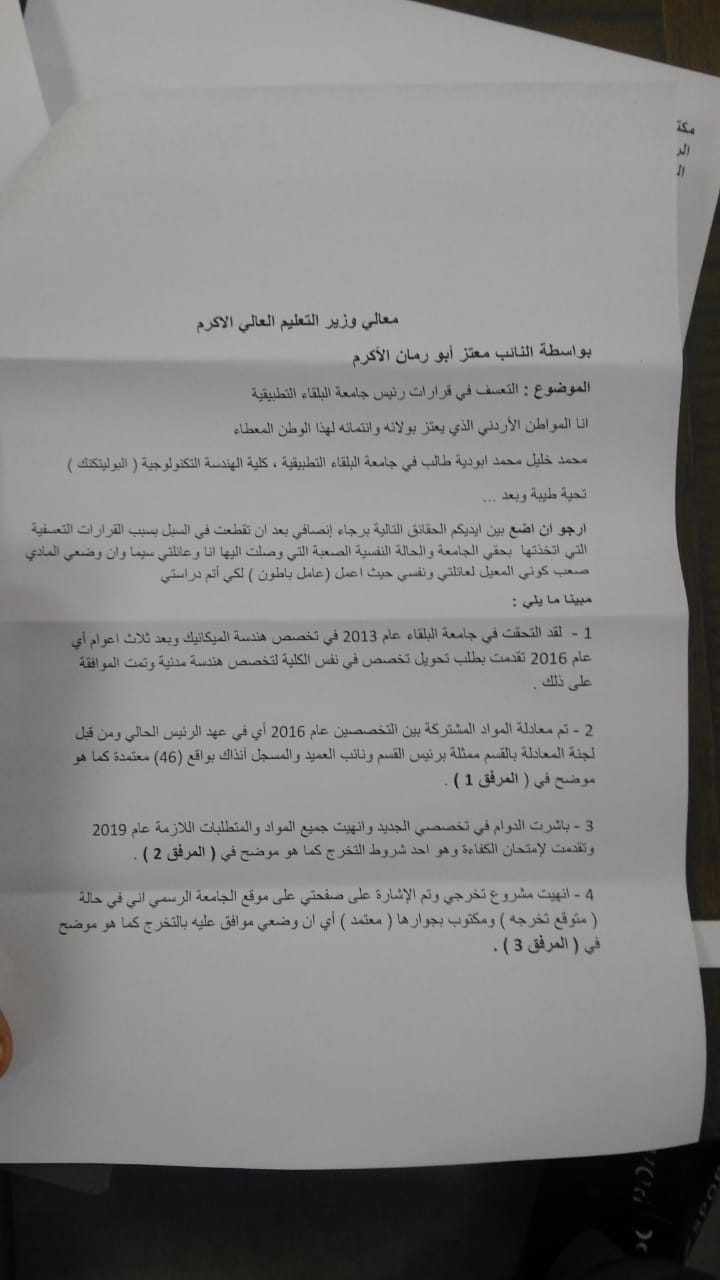 معالي وزير التعليم العالي الاكرم
بواسطة النائب معتز أبو رمان الأكرم
الموضوع : التعسف في قرارات رئيس جامعة البلقاء التطبيقية
انا المواطن الأردني الذي يعتز بولائه وانتمائه لهذا الوطن المعطاء
محمد خليل محمد ابودية طالب في جامعة البلقاء التطبيقية ، كلية الهندسة التكنولوجية ( البوليتكنك )
تحية طيبة وبعد ...
ارجو ان اضع بين ايديكم الحقائق التالية برجاء إنصافي بعد ان تقطعت في السبل بسبب القرارات التعسفية
التي اتخذتها بحقي الجامعة والحالة النفسية الصعبة التي وصلت اليها انا وعائلتي سيما وان وضعي المادي
صعب كوني المعيل لعائلتي ونفسي حيث اعمل (عامل باطون ) لكي أتم دراستي
مبينا ما يلي :
1 - لقد التحقت في جامعة البلقاء عام 2013 في تخصص هندسة الميكانيك وبعد ثلاث اعوام أي
عام 2016 تقدمت بطلب تحويل تخصص في نفس الكلية لتخصص هندسة مدنية وتمت الموافقة
على ذلك .
2 - تم معادلة المواد المشتركة بين التخصصين عام 2016 أي في عهد الرئيس الحالي ومن قبل
لجنة المعادلة بالقسم ممثلة برئيس القسم ونائب العميد والمسجل آنذاك بواقع (46) معتمدة كما هو
موضح في ( المرفق 1 ) .
3 - باشرت الدوام في تخصصي الجديد وانهيت جميع المواد والمتطلبات اللازمة عام 2019
وتقدمت لإمتحان الكفاءة وهو احد شروط التخرج كما هو موضح في ( المرفق 2 ) .
4 - انهيت مشروع تخرجي وتم الإشارة على صفحتي على موقع الجامعة الرسمي اني في حالة
( متوقع تخرجه ) ومكتوب بجوارها ( معتمد ) أي ان وضعي موافق عليه بالتخرج كما هو موضح
في ( المرفق 3 ) .